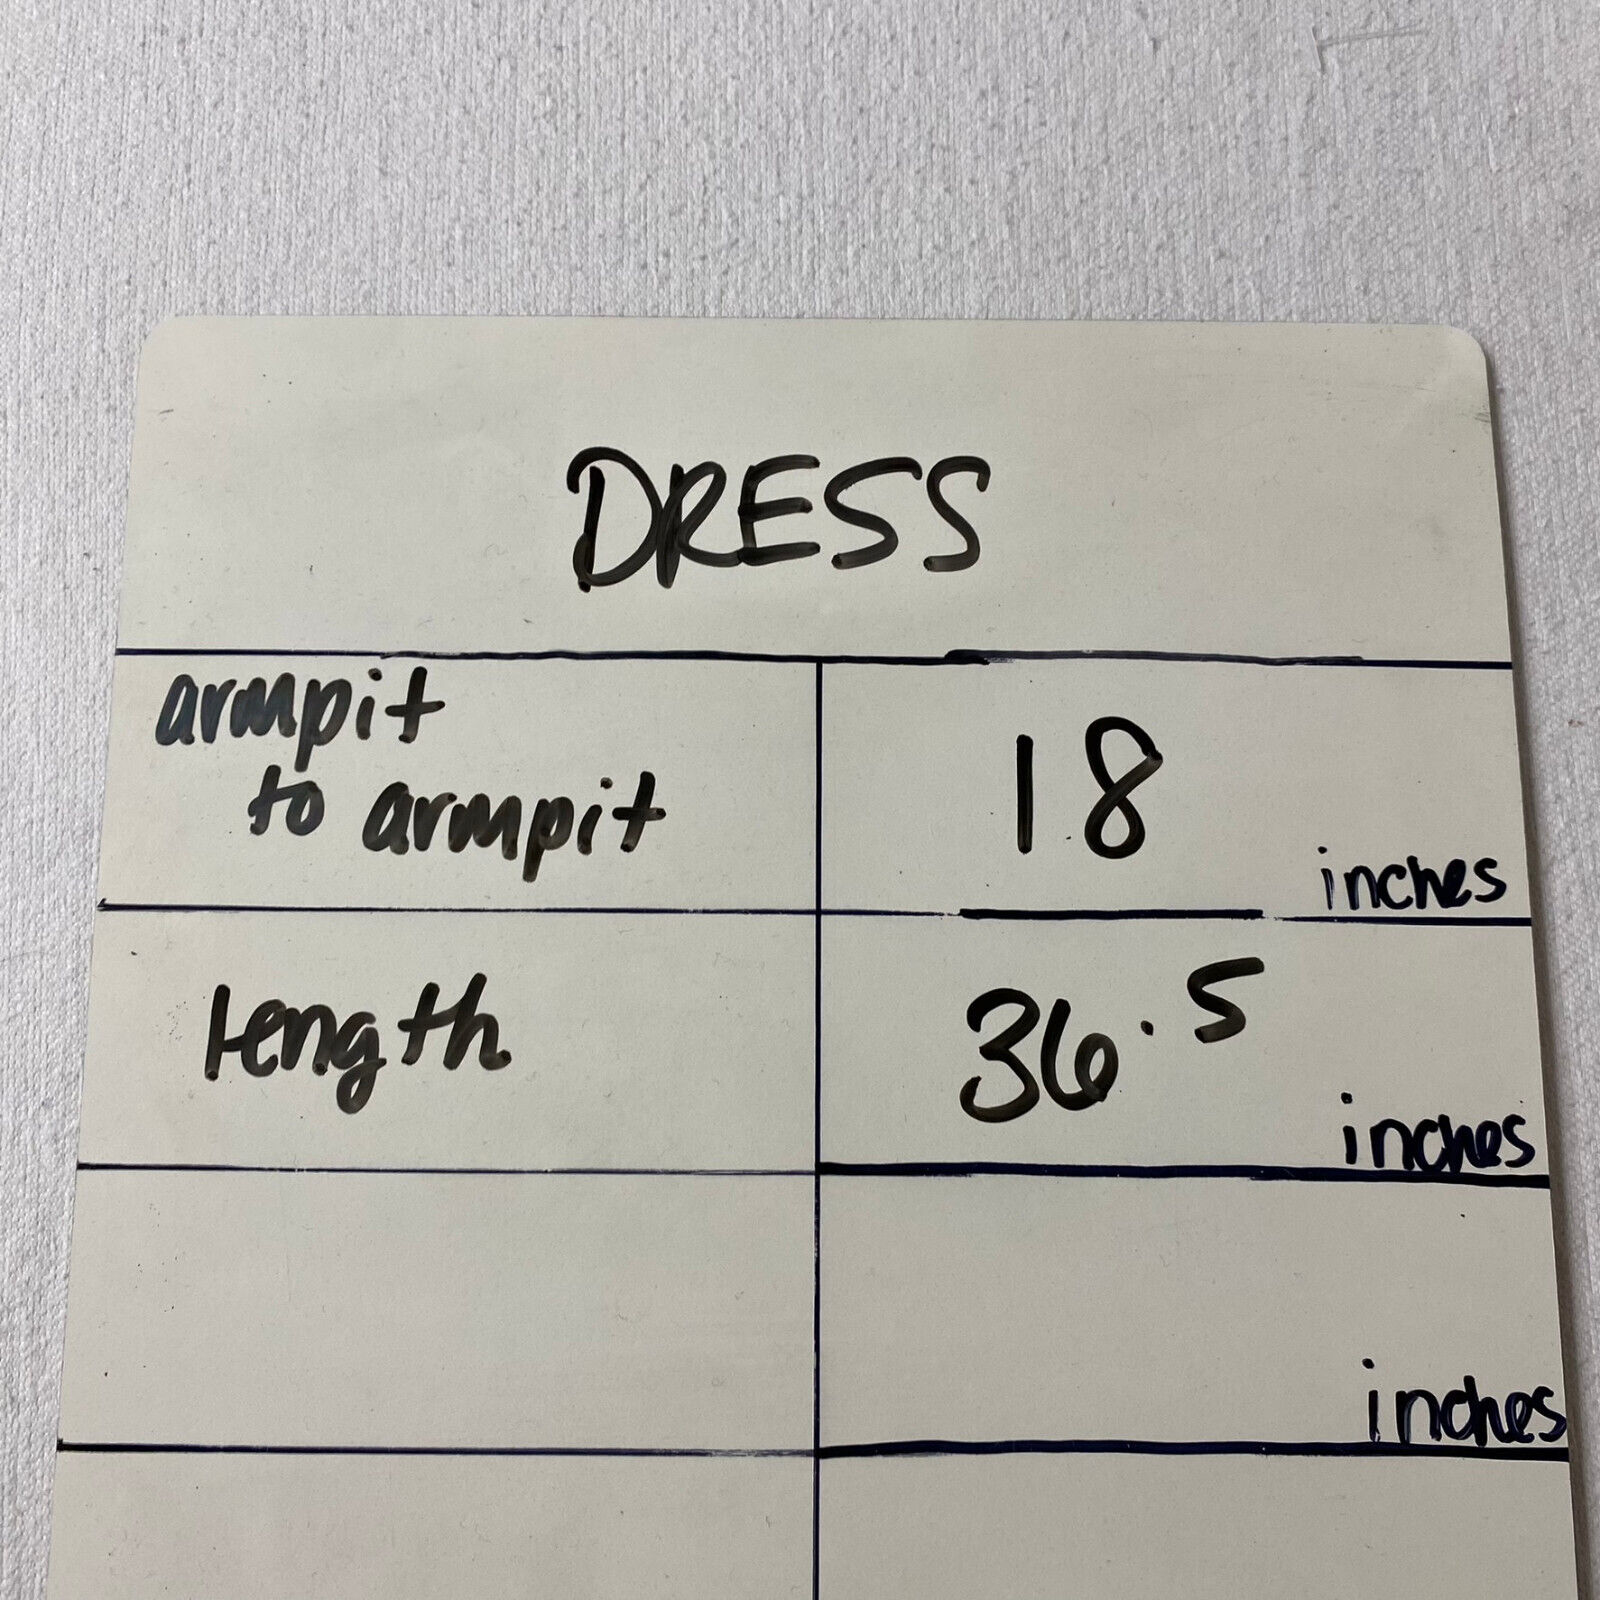 DRESS
armpit
to armpit
18
inches
length
36.5
inches
inches